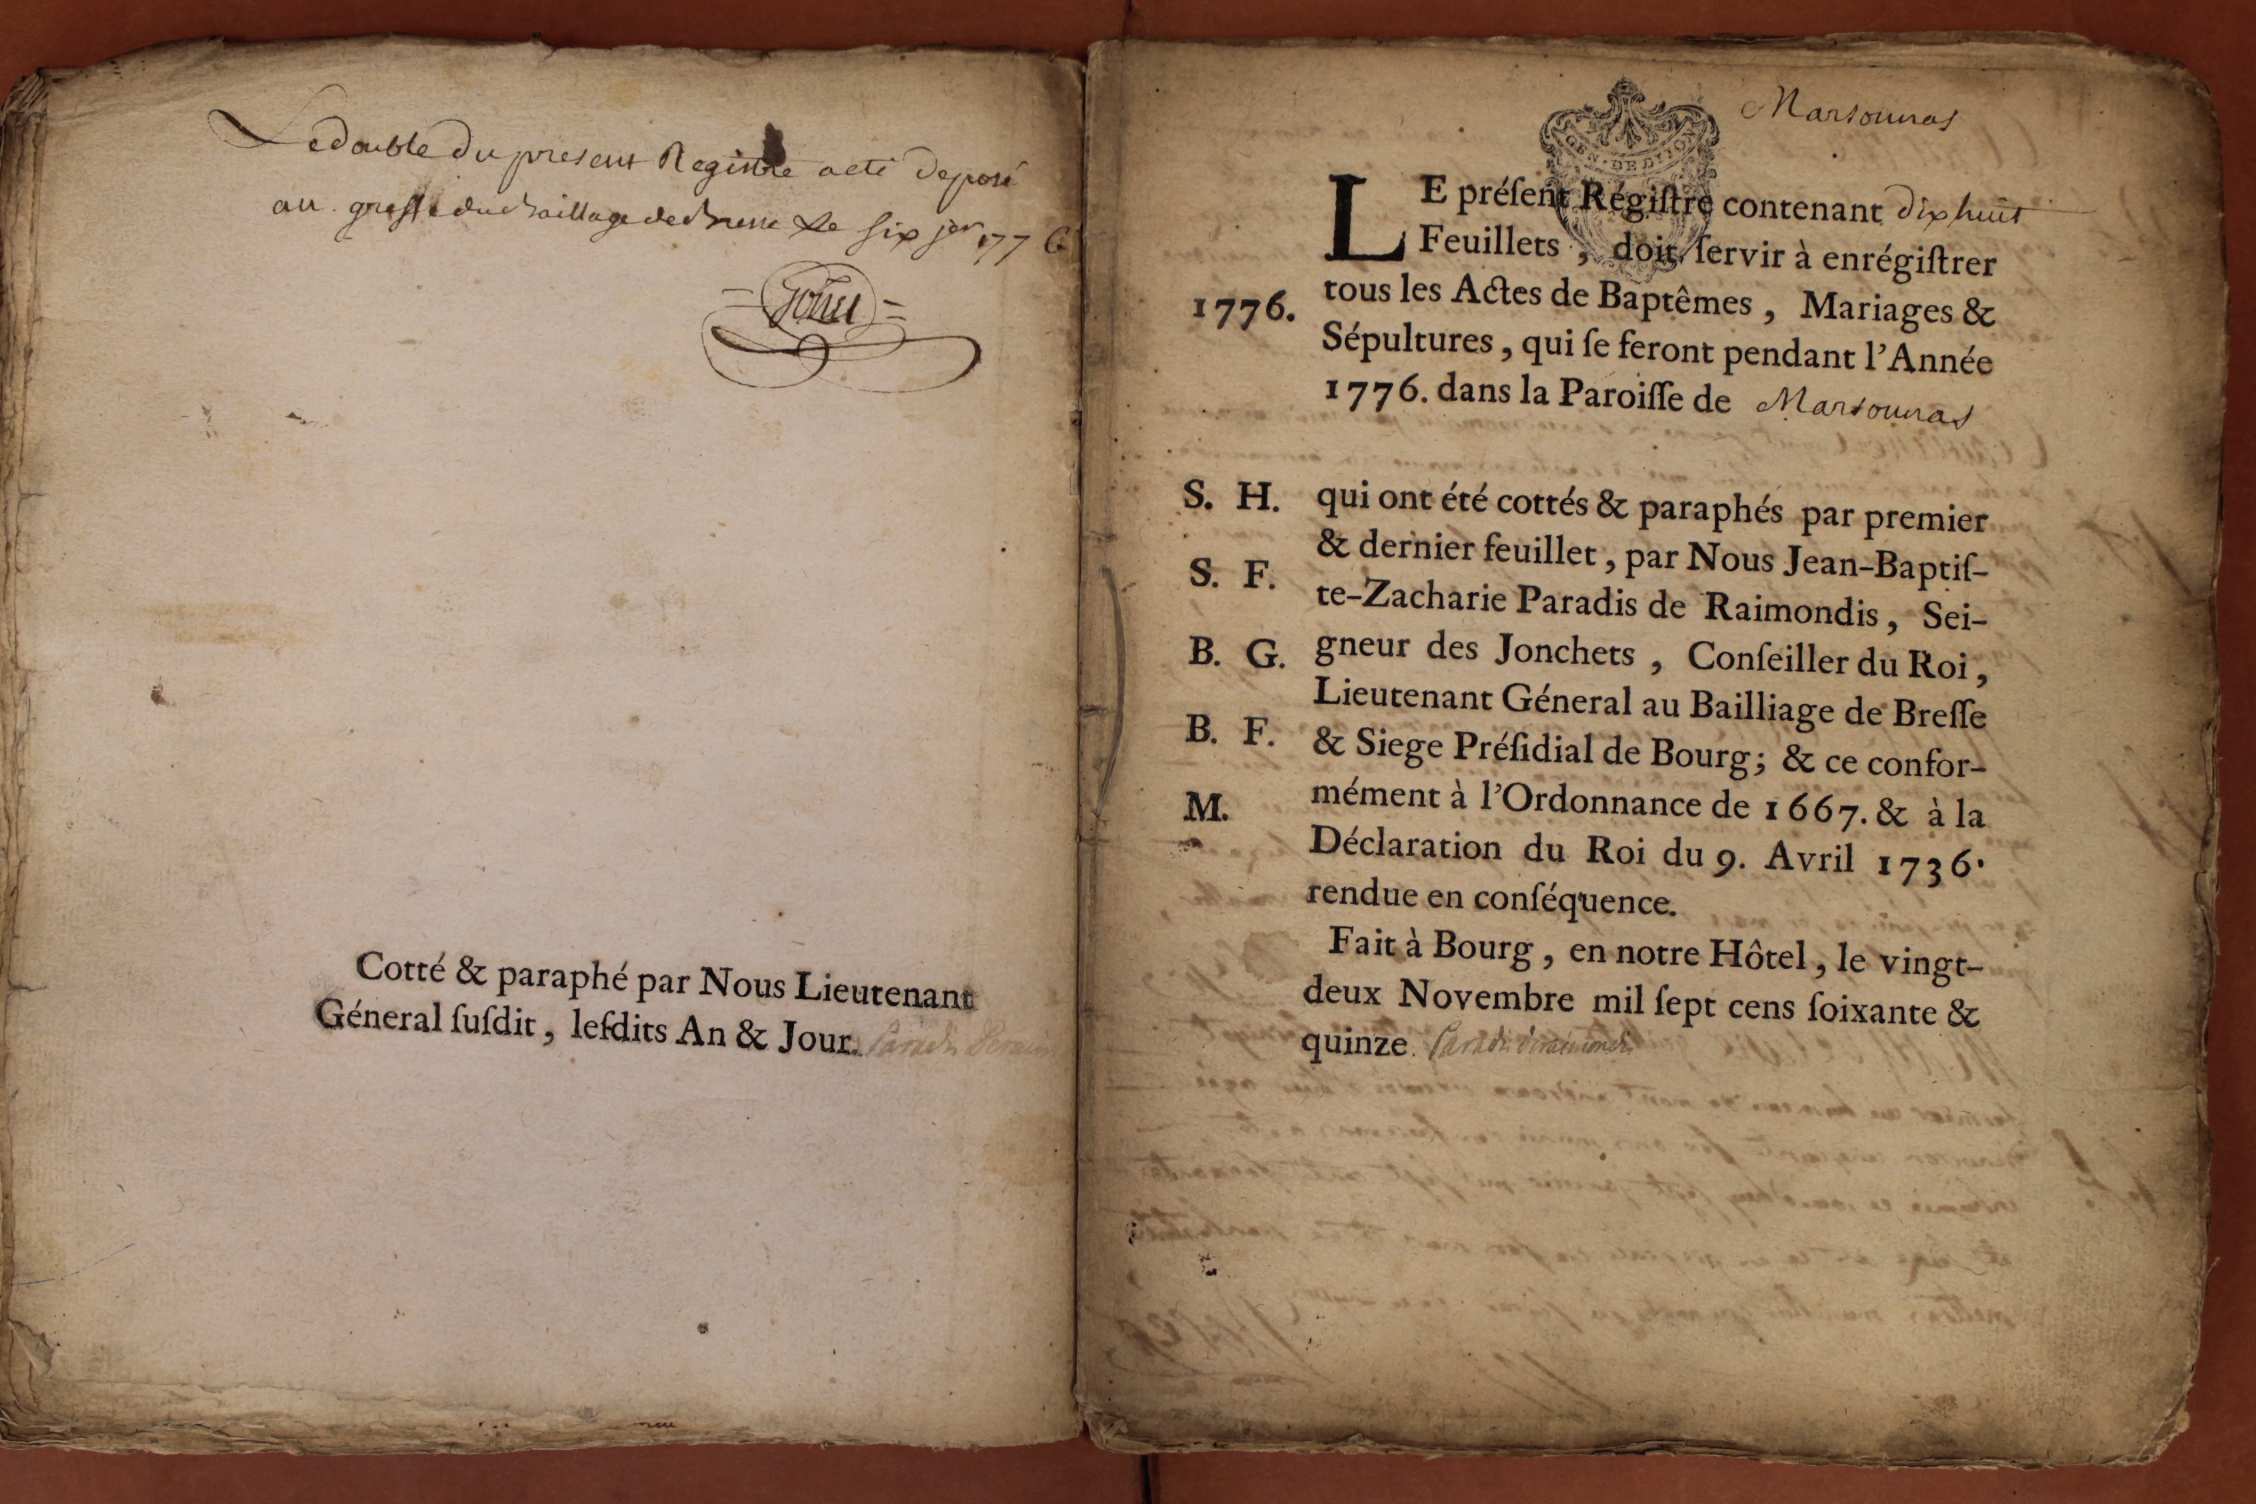 Le double du present Registre a eté deposé
au greffe du bailliage de bresse Le six jer 1776
Cotté & paraphé par Nous Lieutenant
Géneral ſuſdit, leſdits An & Jour.
Marsonnas
GEN. DE DIJON
LE préſent Régiſtre contenant dix huit
Feuillets, doit ſervir à enrégiſtrer
tous les Actes de Baptêmes, Mariages &
1776.
Sépultures, qui ſe feront pendant l'Année
1776. dans la Paroiſſe de Marsonnas
S. H.
qui ont été cottés & paraphés par premier
& dernier feuillet, par Nous Jean-Baptiſ-
S. F.
te-Zacharie Paradis de Raimondis, Sei-
B. G.
gneur des Jonchets, Conſeiller du Roi,
Lieutenant Géneral au Bailliage de Breſſe
B. F.
& Siege Préſidial de Bourg; & ce confor-
M.
mément à l'Ordonnance de 1667. & à la
Déclaration du Roi du 9. Avril 1736.
rendue en conſéquence.
Fait à Bourg, en notre Hôtel, le vingt-
deux Novembre mil ſept cens ſoixante &
quinze. Paradis de raimondis